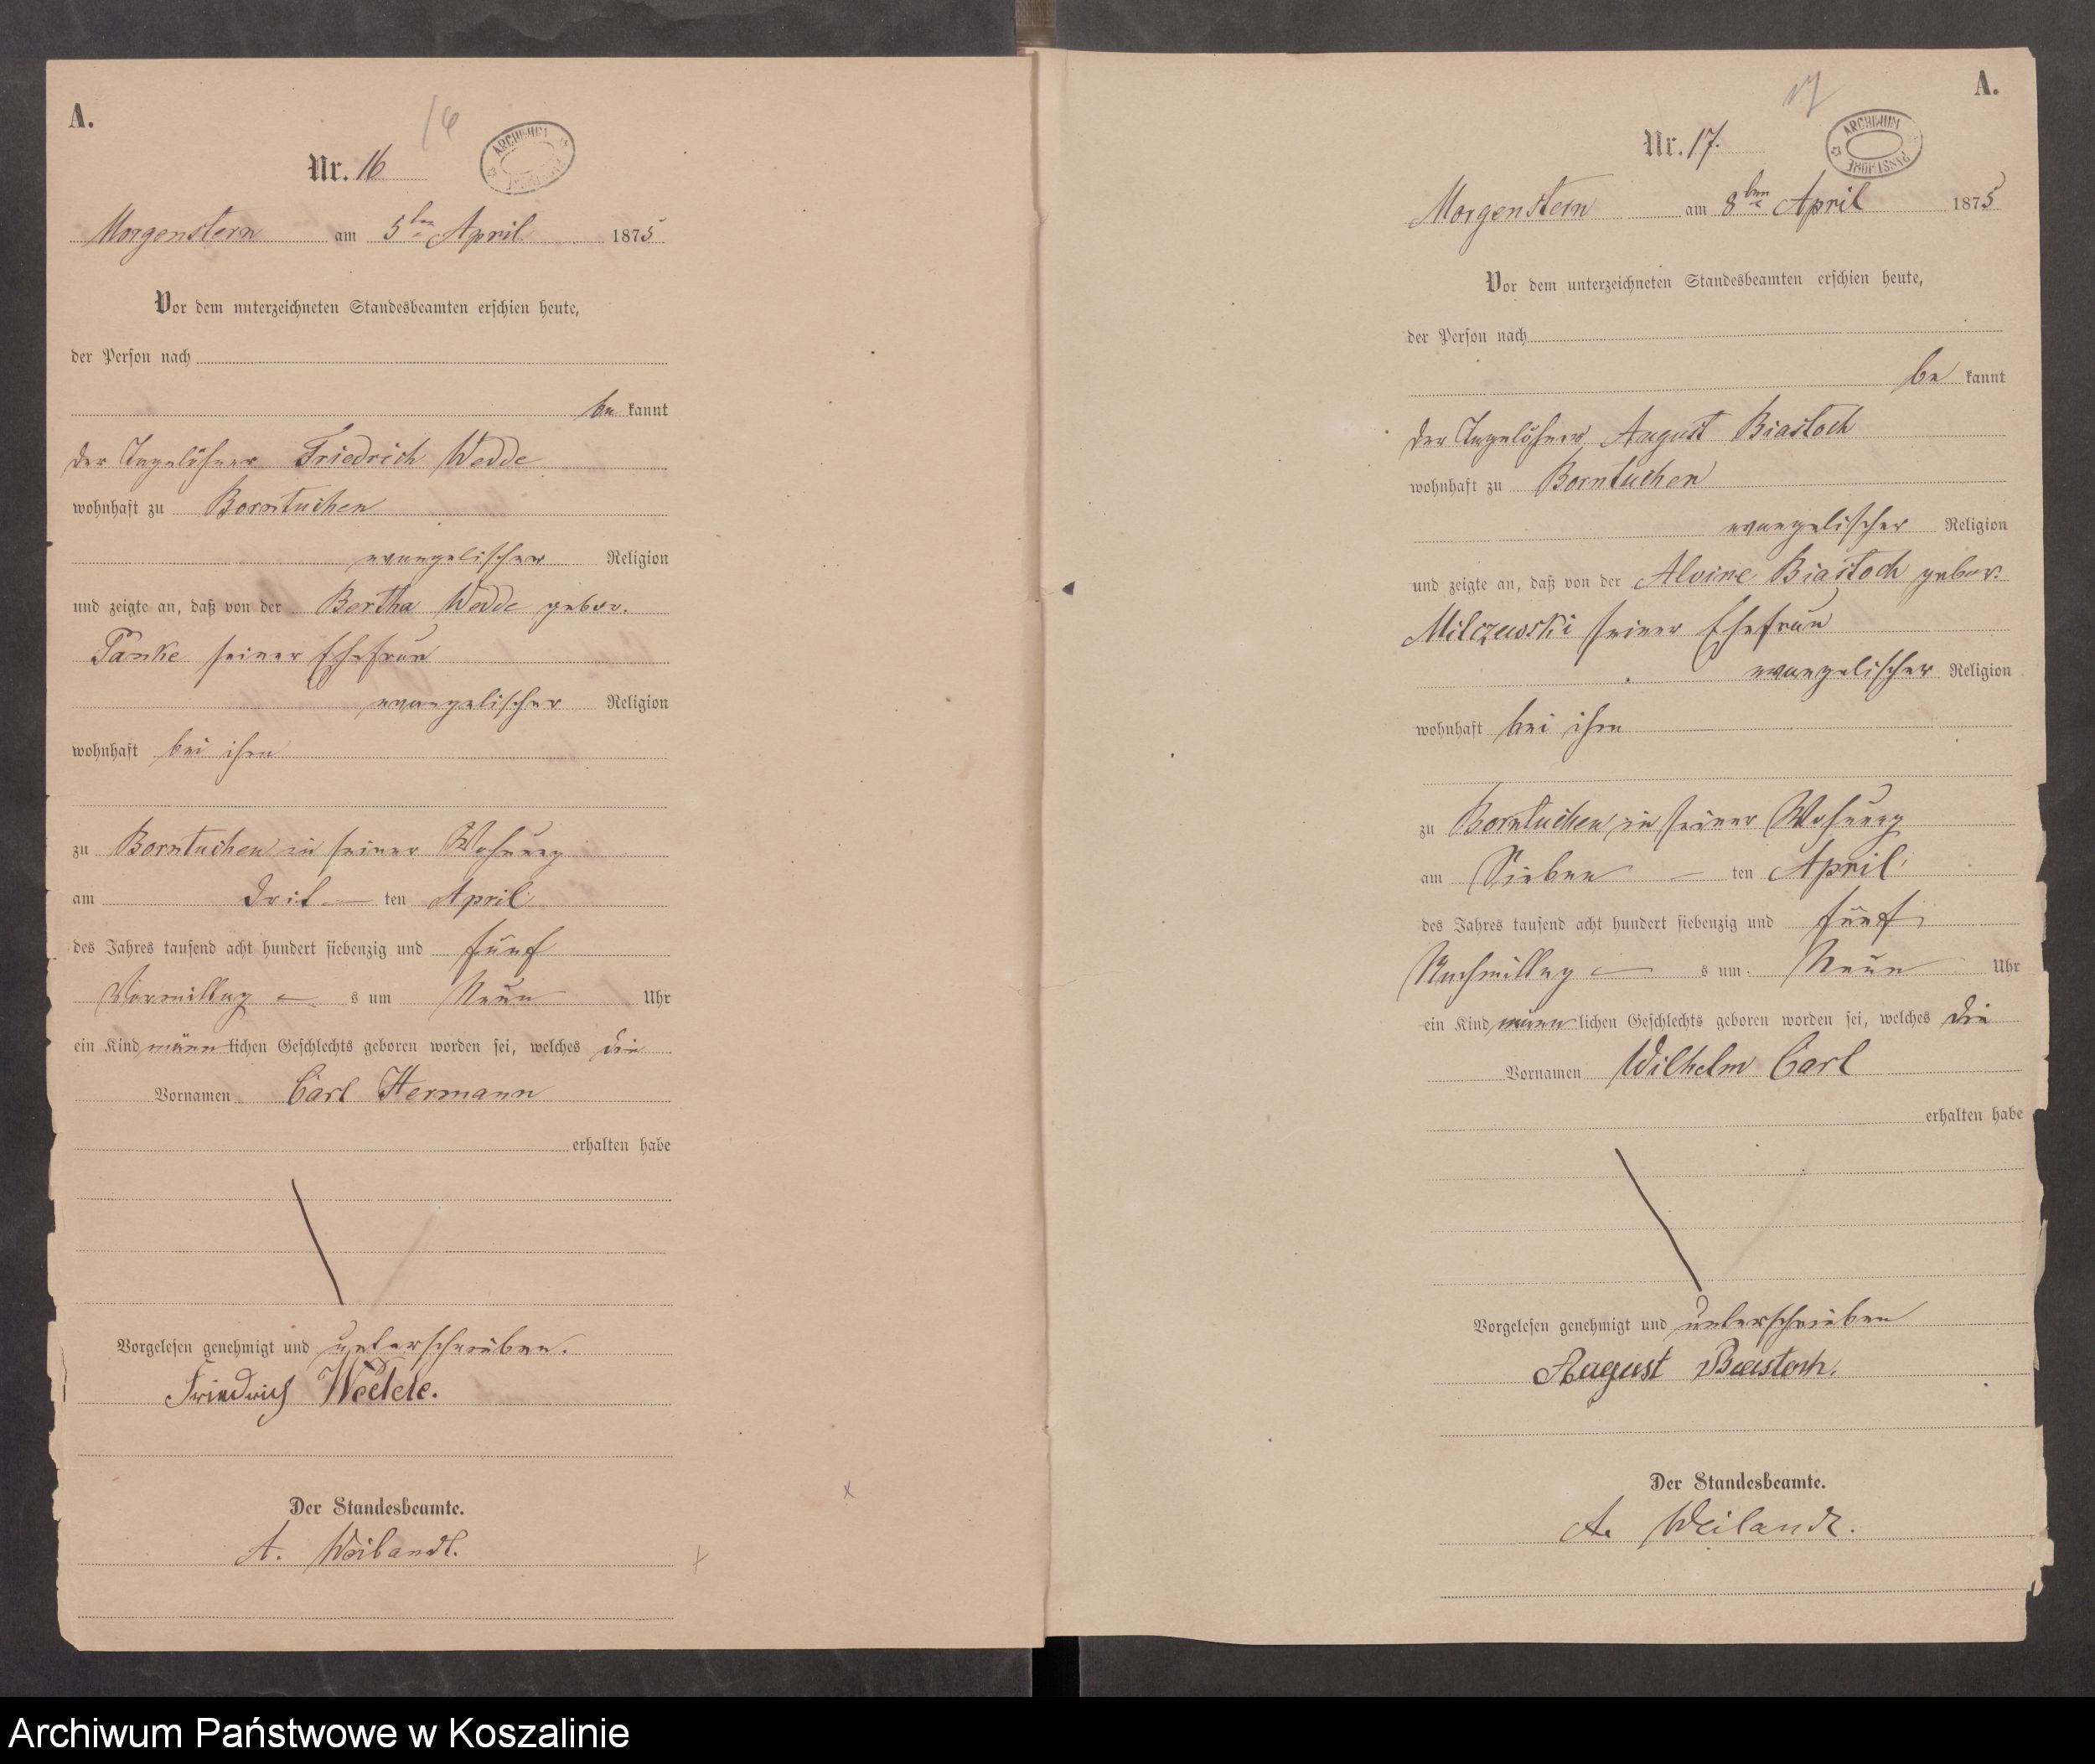 A.
16
ARCHIWUM PAŃSTWOWE
Nr. 16
Morgenstern am 5ten April 1875
Vor dem unterzeichneten Standesbeamten erschien heute,
der Person nach
be kannt
der Tagelöhner Friedrich Wedde
wohnhaft zu Borntuchen
evangelischer Religion
und zeigte an, daß von der Bertha Wedde gebor.
Panke seiner Ehefrau
evangelischer Religion
wohnhaft bei ihm
zu Borntuchen in seiner Wohnung
am Drit – ten April
des Jahres tausend acht hundert siebenzig und fünf
Vormittag – s um Neun Uhr
ein Kind männlichen Geschlechts geboren worden sei, welches die
Vornamen Carl Hermann
erhalten habe
Vorgelesen genehmigt und unterschrieben.
Friedrich Wedde.
Der Standesbeamte.
A. Weilandt.
A.
17
ARCHIWUM PAŃSTWOWE
Nr. 17.
Morgenstern am 8ten April 1875
Vor dem unterzeichneten Standesbeamten erschien heute,
der Person nach
be kannt
der Tagelöhner August Biastoch
wohnhaft zu Borntuchen
evangelischer Religion
und zeigte an, daß von der Alvine Biastoch gebor.
Milczewski seiner Ehefrau
evangelischer Religion
wohnhaft bei ihm
zu Borntuchen in seiner Wohnung
am Sieben – ten April
des Jahres tausend acht hundert siebenzig und fünf
Nachmittag – s um Neun Uhr
ein Kind männlichen Geschlechts geboren worden sei, welches die
Vornamen Wilhelm Carl
erhalten habe
Vorgelesen genehmigt und unterschrieben
August Biastoch.
Der Standesbeamte.
A. Weilandt.
Archiwum Państwowe w Koszalinie